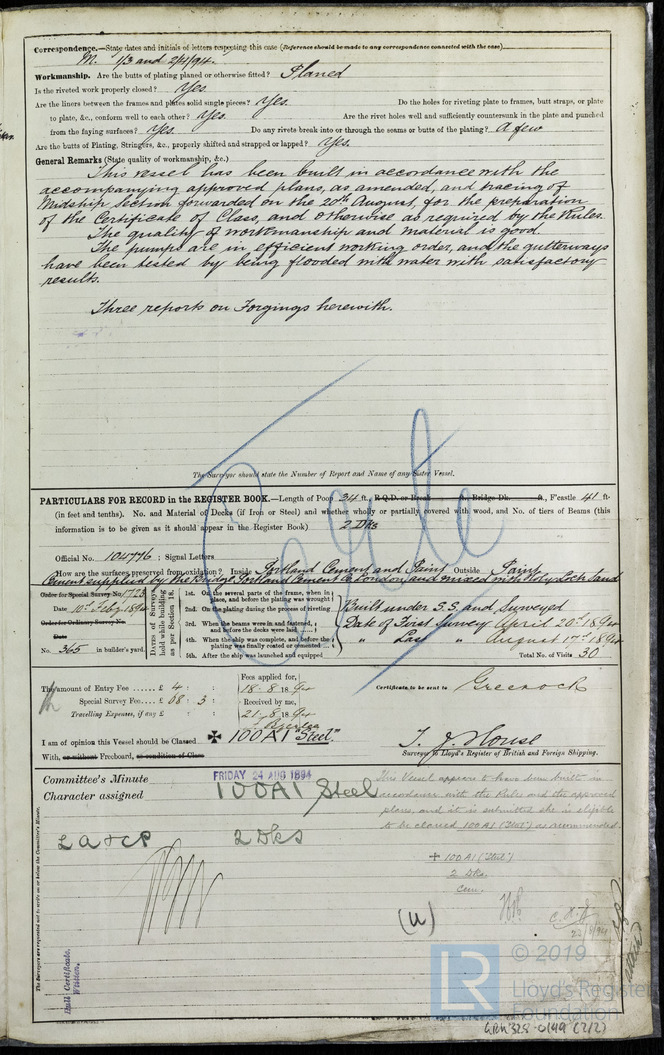 Correspondence.—State dates and initials of letters respecting this case (Reference should be made to any correspondence connected with the case)
M. 1/3 and 2/4/94.
Workmanship. Are the butts of plating planed or otherwise fitted? Planed
Is the riveted work properly closed? Yes.
Are the liners between the frames and plates solid single pieces? Yes. Do the holes for riveting plate to frames, butt straps, or plate
to plate, &c., conform well to each other? Yes. Are the rivet holes well and sufficiently countersunk in the plate and punched
from the faying surfaces? Yes. Do any rivets break into or through the seams or butts of the plating? A few
Are the butts of Plating, Stringers, &c., properly shifted and strapped or lapped? Yes.
General Remarks (State quality of workmanship, &c.)
This vessel has been built in accordance with the
accompanying approved plans, as amended, and tracing of
Midship Section forwarded on the 20th August, for the preparation
of the Certificate of Class, and otherwise as required by the Rules.
The quality of workmanship and material is good.
The pumps are in efficient working order, and the gutterways
have been tested by being flooded with water with satisfactory
results.
Three reports on Forgings herewith.
The Surveyor should state the Number of Report and Name of any Sister Vessel.
PARTICULARS FOR RECORD in the REGISTER BOOK.—Length of Poop 34 ft., R.Q.D. or Break ft., Bridge Dk. ft., F'castle 41 ft.
(in feet and tenths). No. and Material of Decks (if Iron or Steel) and whether wholly or partially covered with wood, and No. of tiers of Beams (this
information is to be given as it should appear in the Register Book) 2 Dks
Official No. 104776 ; Signal Letters
How are the surfaces preserved from oxidation? Inside Portland Cement and Paint Outside Paint
Cement supplied by the Bridge Portland Cement Co London and mixed with Holy Loch Sand
Order for Special Survey No. 1723
Date 10th Feby 1894
Order for Ordinary Survey No.
Date
No. 365 in builder's yard.
Dates of Surveys held while building as per Section 18.
1st. On the several parts of the frame, when in place, and before the plating was wrought
2nd. On the plating during the process of riveting
3rd. When the beams were in and fastened, and before the decks were laid
4th. When the ship was complete, and before the plating was finally coated or cemented
5th. After the ship was launched and equipped
Built under S.S. and Surveyed
Date of First Survey April 20th 1894
" Last " August 17th 1894
Total No. of Visits 30
The amount of Entry Fee £ 4 : :
Special Survey Fee £ 68 : 3 :
Travelling Expenses, if any £ : :
Fees applied for,
18 - 8 1894
Received by me,
21 - 8 1894
Certificate to be sent to Greenock
I am of opinion this Vessel should be Classed ✠ 100 A1 "Steel"
With, or without Freeboard, or condition of Class
Surveyor to Lloyd's Register of British and Foreign Shipping.
Committee's Minute
FRIDAY 24 AUG 1894
Character assigned 100A1 Steel
2 Dks
This Vessel appears to have been built in
accordance with the Rules and the approved
plans, and it is submitted she is eligible
to be classed 100 A1 ("Steel") as recommended.
+ 100 A1 ("Steel")
2 Dks.
Cem.
22/8/94
The Surveyors are requested not to write on or below the Committee's Minute.
Hull Certificate.
Written.
© 2019
LR
Lloyd's Register
Foundation
GRK 328-0149 (2/2)